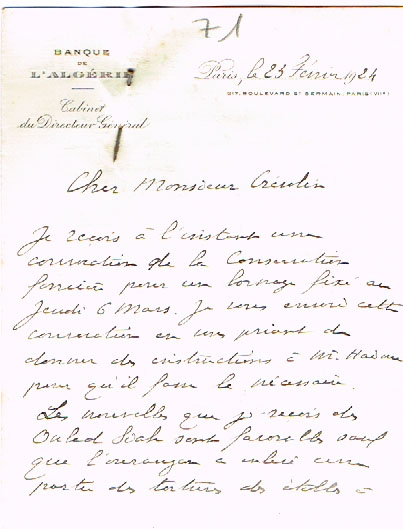 71
BANQUE
DE
L'ALGÉRIE
Cabinet
du Directeur Général
Paris, le 23 Février 1924
217, BOULEVARD ST GERMAIN (PARIS VIIe)
Cher Monsieur
Je reçois à l'instant une
convocation de la Conservation
foncière pour un bornage fixé au
Jeudi 6 Mars. Je vous envoie cette
convocation en vous priant de
donner des instructions à Mr.
pour qu'il fasse le nécessaire.
Les nouvelles que je reçois des
Ouled Siah sont favorables sauf
que l'ouragan a enlevé une
partie des toitures des étables à